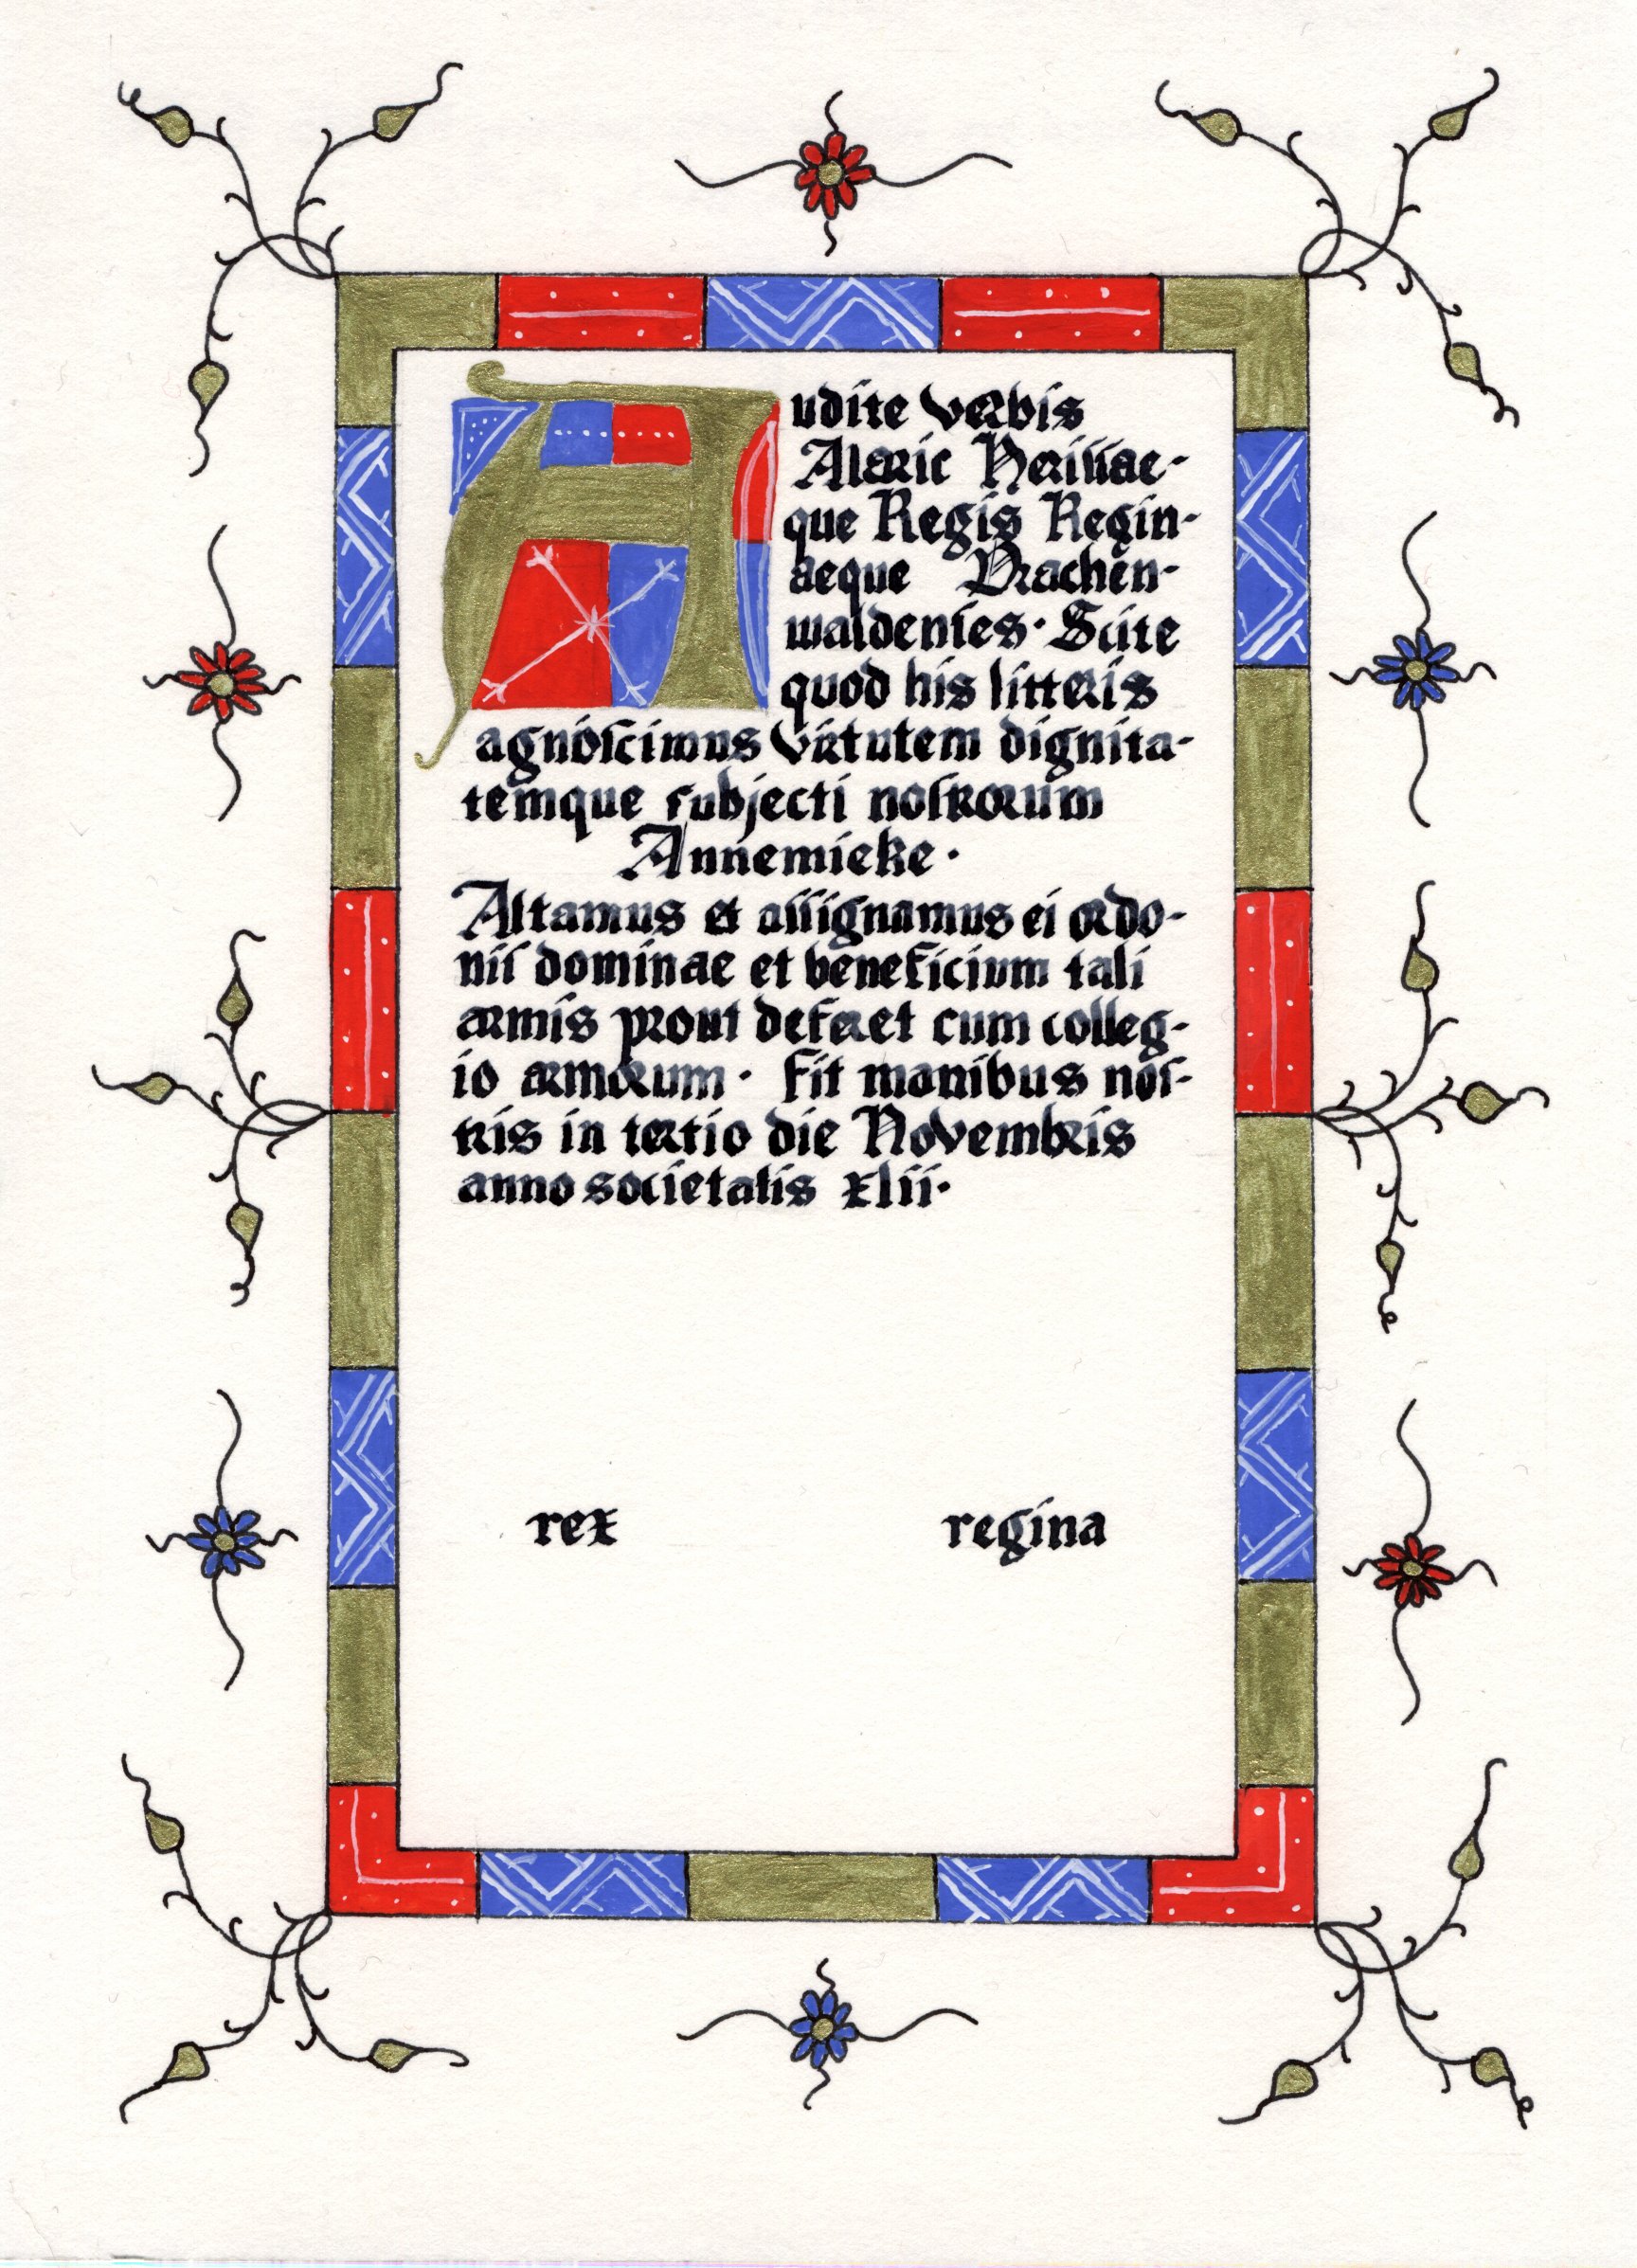 Audite verbis
Alaric Nerissae-
que Regis Regin-
aeque Drachen-
waldenses· Scite
quod his litteris
agnoscimus virtutem dignita-
temque subjecti nostrorum
Annemieke·
Altamus et assignamus ei ordo-
nis dominae et beneficium tali
armis prout deferet cum colleg-
io armorum· Fit manibus nos-
tris in tertio die Novembris
anno societatis xlii·
rex regina